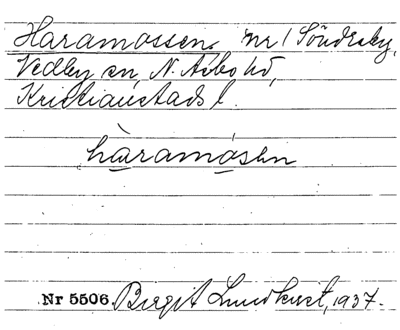 Haramossen. nr 1 Söndraby,
Vedby sn, N. Åsbo hd,
Kristianstads l.
hàramósn
Nr 5506. Birgit Lundkvist, 1937.